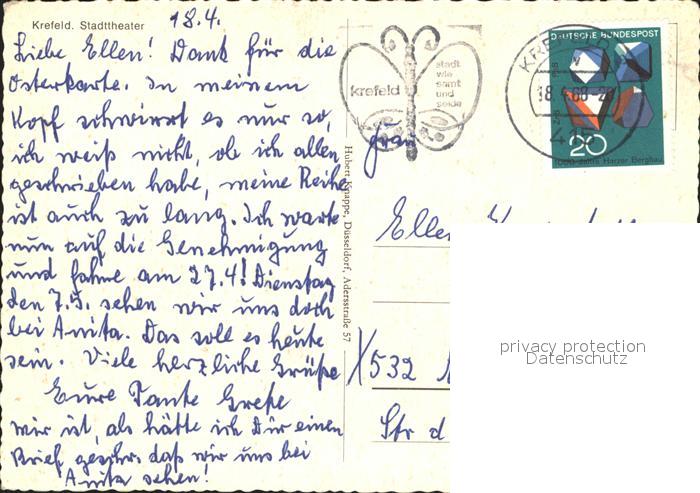 Krefeld. Stadttheater
18.4.
Liebe Ellen! Dank für die
Osterkarte. In meinem
Kopf schwirrt es nur so,
ich weiß nicht, ob ich allen
geschrieben habe, meine Reihe
ist auch zu lang. Ich warte
nun auf die Genehmigung
und fahre am 27.4! Dienstag
den 7.5. sehen wir uns doch
bei Anita. Das soll es heute
sein. Viele herzliche Grüße
Eure Tante Grete
mir ist, als hätte ich Dir einen
Brief geschr. daß wir uns bei
Anita sehen!
Hubert Knappe, Düsseldorf, Adersstraße 57
krefeld
stadt
wie
samt
und
seide
KREFELD
18.4.68-20
415
DEUTSCHE BUNDESPOST
20
1000 Jahre Harzer Bergbau
Frau
Ellen
532
Str d
privacy protection
Datenschutz